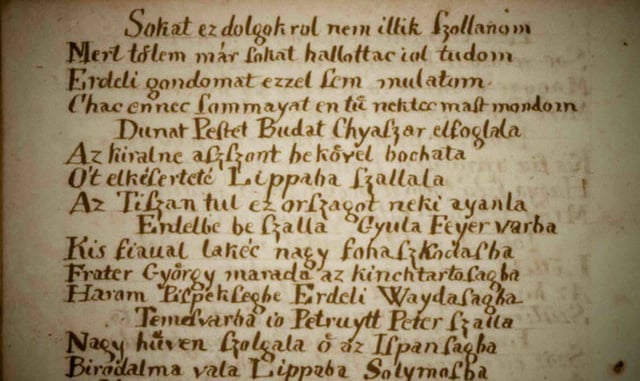 Sokat ez dolgokrol nem illik ſzollanom
Mert tőlem már ſokat hallottac iol tudom
Erdeli gondomat ezzel ſem mulatom
Chac ennec ſommayat en tű nektec maſt mondom
Dunat Peſtet Budat Chyaſzar elfoglala
Az kiralne aſzſzont be kővel bochata
Őt elkéſerteté Lippaba ſzallala
Az Tiſzan tul ez orſzagot neki ayanla
Erdelbe be ſzalla Gyula Feyer varba
Kis fiaual lakéc nagy fohaſzkodaſba
Frater György marada az kinchtartoſagba
Haram Piſpekſegbe Erdeli Waydaſagba
Temeſvarba io Petruytt Peter ſzalla
Nagy hűven ſzolgala ő az Iſpanſagba
Birodalma vala Lippaba Solymoſba